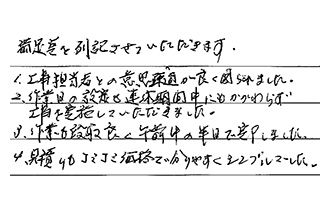 満足点を列記させていただきます。
1. 工事担当者との意思疎通が良く図られました。
2. 作業日の設定も連休期間中にもかかわらず
工事を実施していただきました。
3. 作業も段取良く午前中の半日で完了しました。
4. 見積りもコミコミ価格で分りやすくシンプルでした。